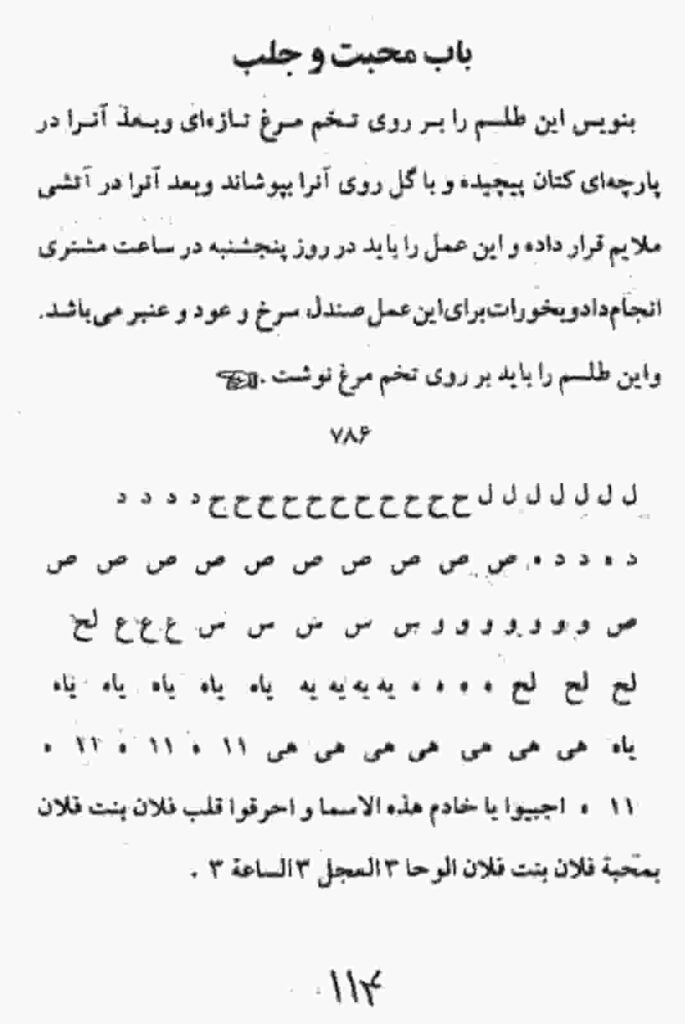 باب محبت و جلب
بنویس این طلسم را بر روی تخم مرغ تازه‌ای وبعد آنرا در
پارچه‌ای کتان پیچیده و با گل روی آنرا بپوشاند وبعد آنرا در آتشی
ملایم قرار داده و این عمل را باید در روز پنجشنبه در ساعت مشتری
انجام داد و بخورات برای این عمل صندل سرخ و عود و عنبر می‌باشد.
واین طلسم را باید بر روی تخم مرغ نوشت.
۷۸۶
ل ل ل ل ل ل ل ح ح ح ح ح ح ح ح ح ح ح د د د د
د ه د د ه ص ص ص ص ص ص ص ص ص ص
ص و و و و و و و س س س س س س ع ع ع لح
لح لح لح ه ه ه ه یه یه یه یه یاه یاه یاه یاه یاه
یاه هی هی هی هی هی هی هی ۱۱ ه ۱۱ ه ۱۱ ه
۱۱ ه اجیبوا یا خادم هذه الاسما و احرقوا قلب فلان بنت فلان
بمحبة فلان بنت فلان الوحا ۳ العجل ۳ الساعة ۳ .
۱۱۴